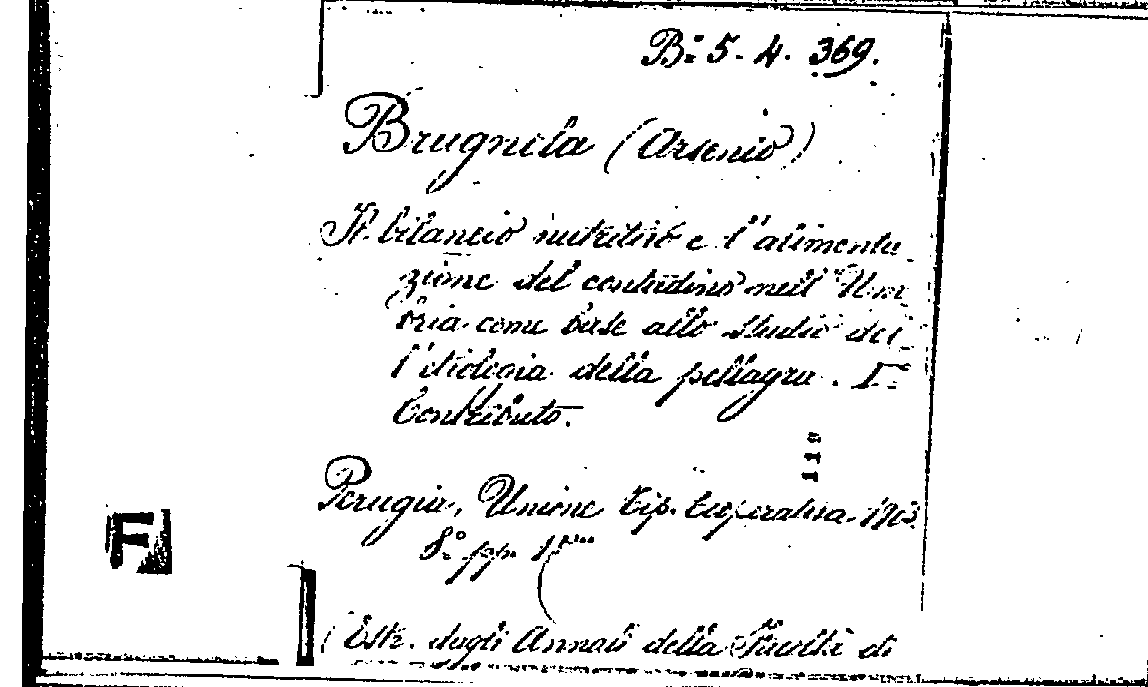 B: 5. 4. 369.
Brugnola (Arsenio)
Il bilancio nutritivo e l'alimenta
zione del contadino nell'Um
bria come base allo studio del
l'etiologia della pellagra. I
Contributo.
110
Perugia, Unione tip. Cooperativa
8.° pp.
(Estr. dagli Annali della Facoltà di
F